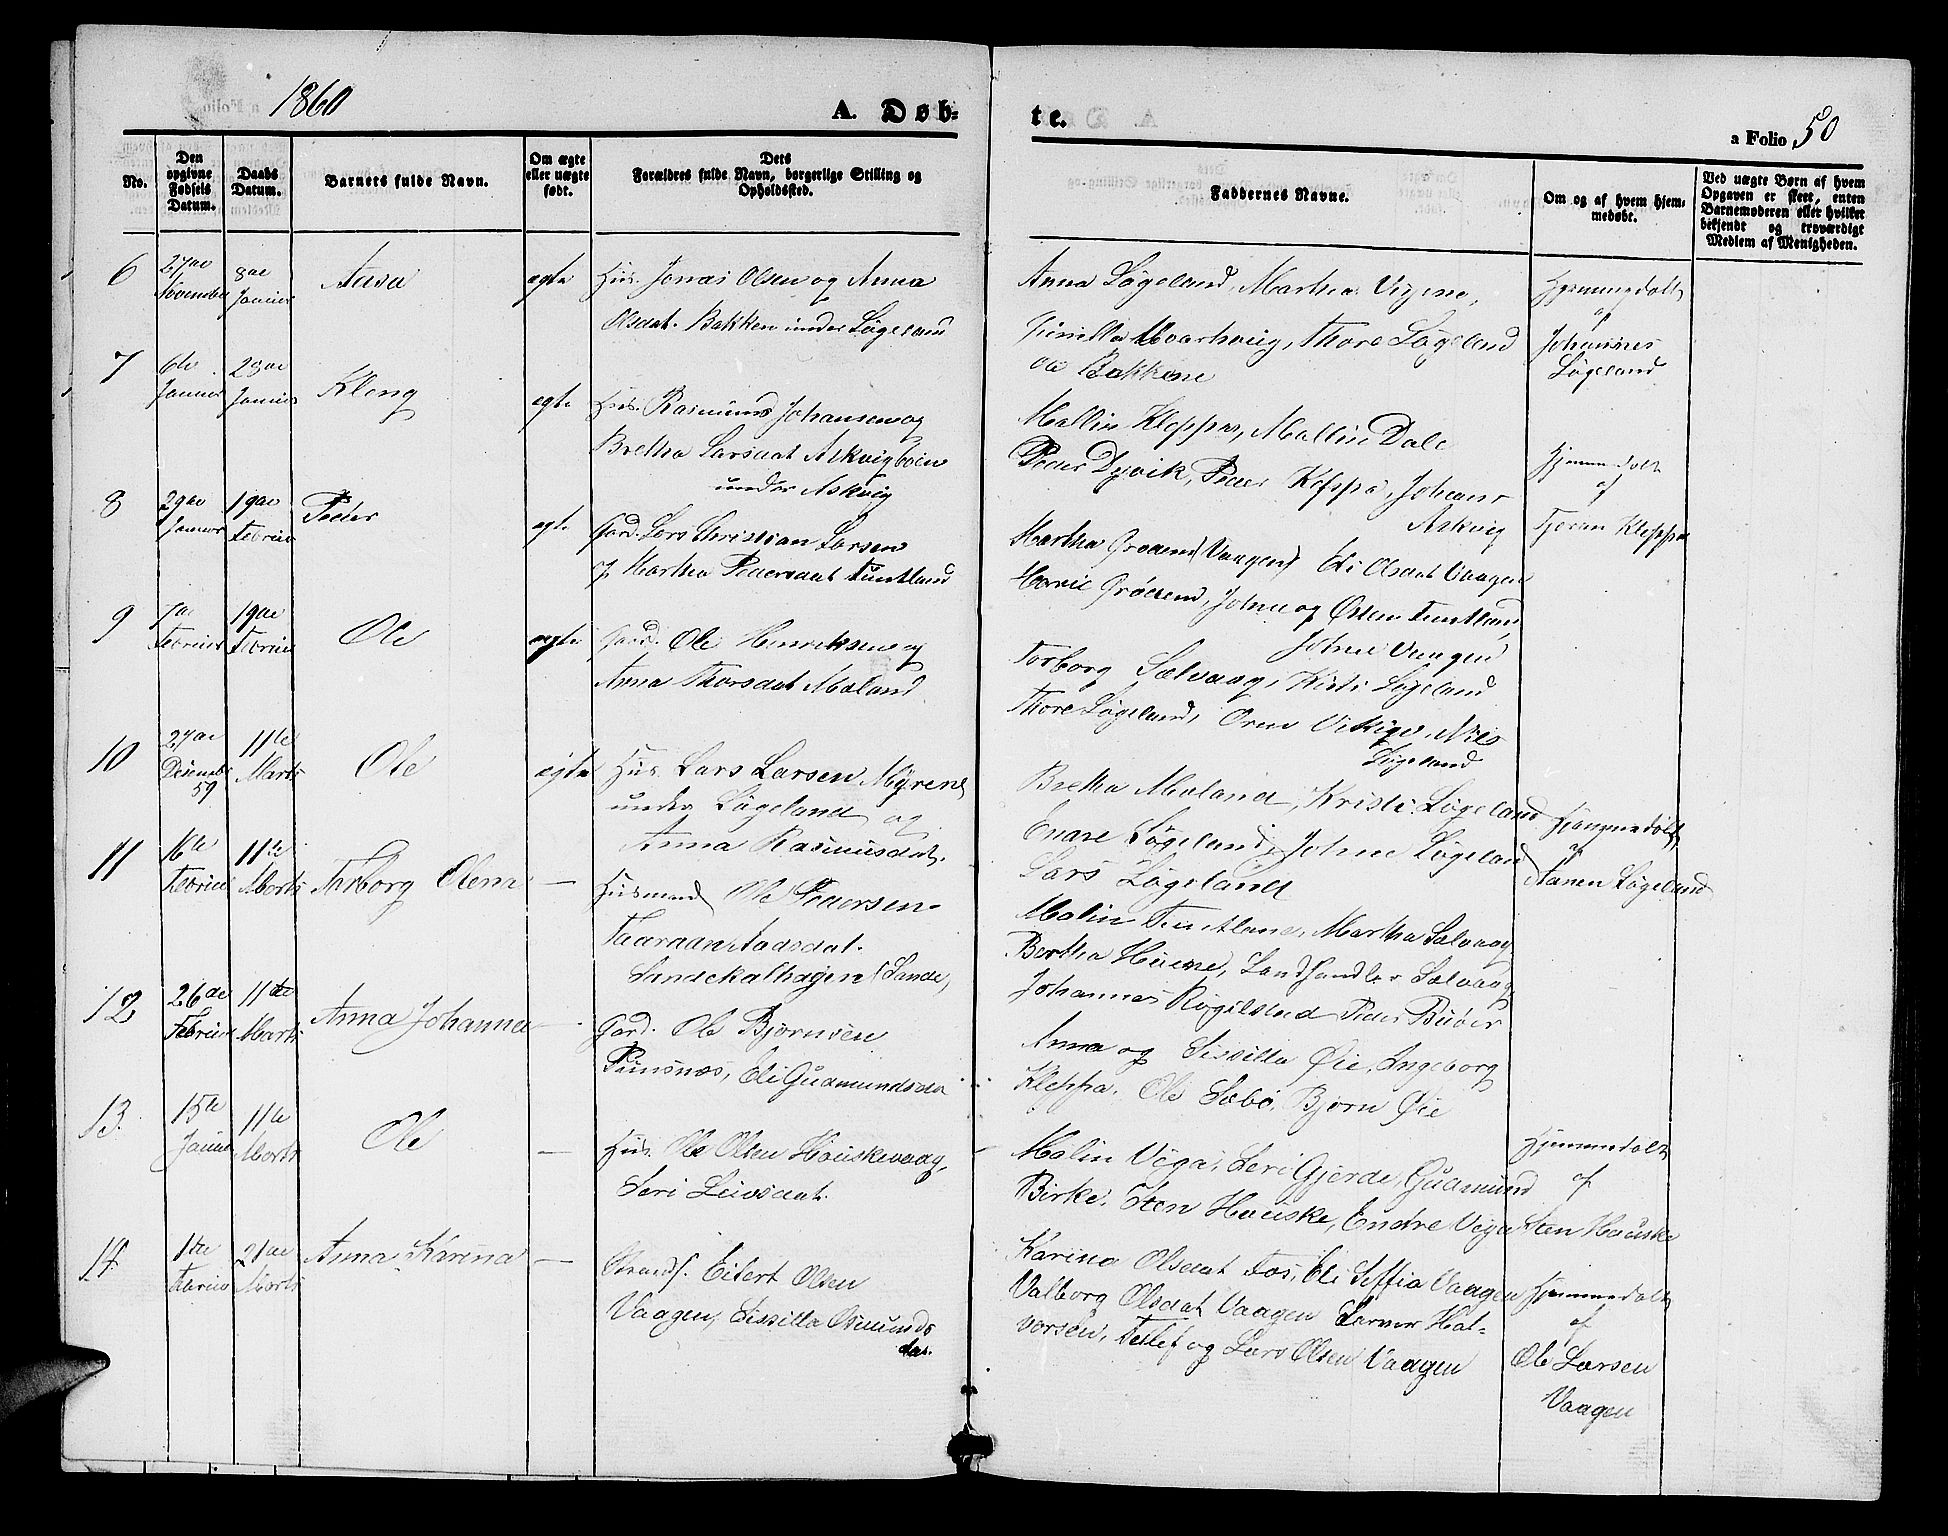 1860
A. Døb-
te.
a Folio 50
No.
Den opgivne Fødsels Datum.
Daabs Datum.
Barnets fulde Navn.
Om ægte eller uægte født.
Dets Forældres fulde Navn, borgerlige Stilling og Opholdssted.
Faddernes Navne.
Om og af hvem hjemmedøbt.
Ved uægte Børn af hvem Opgaven er skeet, enten Barnemoderen eller hvilket bekjendt og troværdigt Medlem af Menigheden.
6 27de November 8de Januar Aasa ægte Hus. Jonas Olsen og Anna
Olsdat. Bakken under Løgeland
Anna Løgeland, Martha Vigene,
Thore Løgeland
Bakkene
Hjemmedøbt
af
Johannes
Løgeland
7 6te Januar 28de Januar Kleng ægte Hus. Rasmus Johansen og
Bretha Larsdat Askvigbøen
under Askvig
Mallin Kleppa, Mallin Dale
Peder Dyvik, Peder Kleppa, Johans
Askvig
Hjemmedøbt
af
Kleppa
8 29de Januar 19de Februar Peder ægte Gard. Lars Christian Larsen
og Martha Pedersdat Tuntland
Martha (Vaagen) Eli Olsdat Vaagen
Johne og Østen Tuntland,
Johne Vaagen
9 Februar 19de Februar Ole ægte Gard. Ole Henriksen og
Anna Thorsdat Moland
Torborg Sælvaag, Kisti Løgeland
Thore Løgeland, Nils
Løgeland
10 27de Desember 59 11te Marts Ole ægte Hus. Lars Larsen Myrene
under Løgeland og
Anna Rasmusdat.
Bretha Moland, Kristi Løgeland
Enare Løgeland, Johne Løgeland
Lars Løgeland
Hjemmedøbt
af
Aanen Løgeland
11 16de Februar 11te Marts Tarborg Elena — Husmand Ole Pedersen
Aadsdat.
Sandekalhagen (Sande,
Malin Tuntland, Martha Sælvaag
Bertha Høiene, Landhandler Sælvaag
Johannes Røgilstad Peder
12 26de Februar 11te Marts Anna Johanna — Gard. Ole Bjørnsen
Punsnes, Eli Gudmundsda
Anna og Sissilla Øie, Ingeborg
Kleppa. Ole Sæbø, Bjørn Øie
13 15de Januar 11te Marts Ole — Hus. Ole Olsen Houskevaag,
Seri Leivsdat.
Malin Vega, Seri Gjerde, Gudmund
Birke, Sten Houske, Endre Vega
Hjemmedøbt
af
Sten Houske
14 1de Februar 21de Marts Anna Karina — Strands. Eilert Olsen
Vaagen, Sissilla Osmunds
dat.
Karina Olsdat Fos, Eli Soffia Vaagen
Valborg Olsdat Vaagen Hal-
vorsen, Tollef og Lars Olsen Vaagen
Hjemmedøbt
af
Ole Larsen
Vaagen